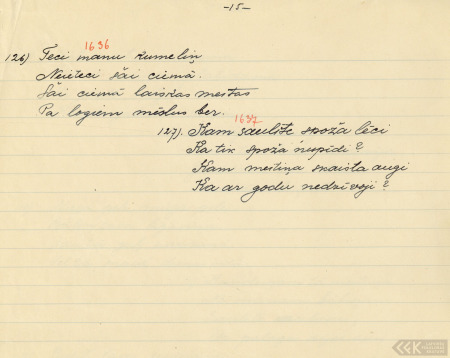 -15-
1636
126) Teci manu kumeliņ
Neieteci šāi ciemā.
Šāi ciemā laiskas meitas
Pa logiem mēslus ber.
1637
127). Kam saulīte spoža lēci
Ka tik spoža nupīdi?
Kam meitiņa skaista augi
Ka ar godu nedzīvoji?